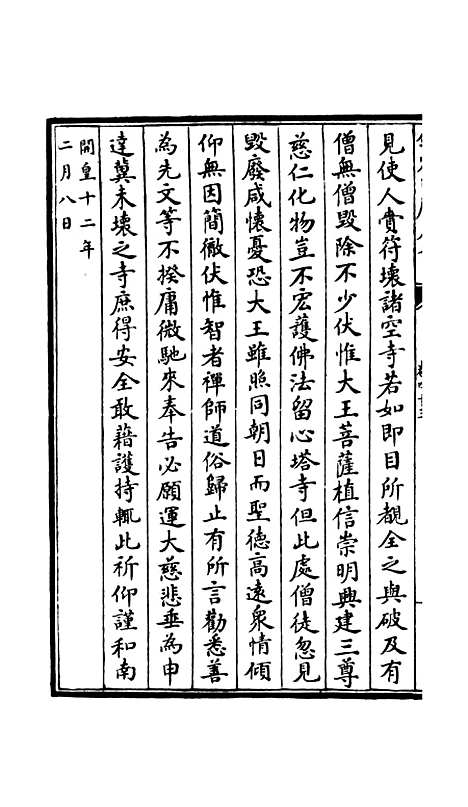 見使人賫符壞諸空寺若如即目所覩全之與破及有
僧無僧毀除不少伏惟大王菩薩植信崇明興建三尊
慈仁化物豈不宏護佛法留心塔寺但此處僧徒忽見
毀廢咸懷憂恐大王雖照同朝日而聖德高遠衆情傾
仰無因簡徹伏惟智者禪師道俗歸止有所言勸悉善
為先文等不揆庸微馳來奉告必願運大慈悲垂為申
達冀未壞之寺庶得安全敢藉護持輒此祈仰謹和南
開皇十二年
二月八日